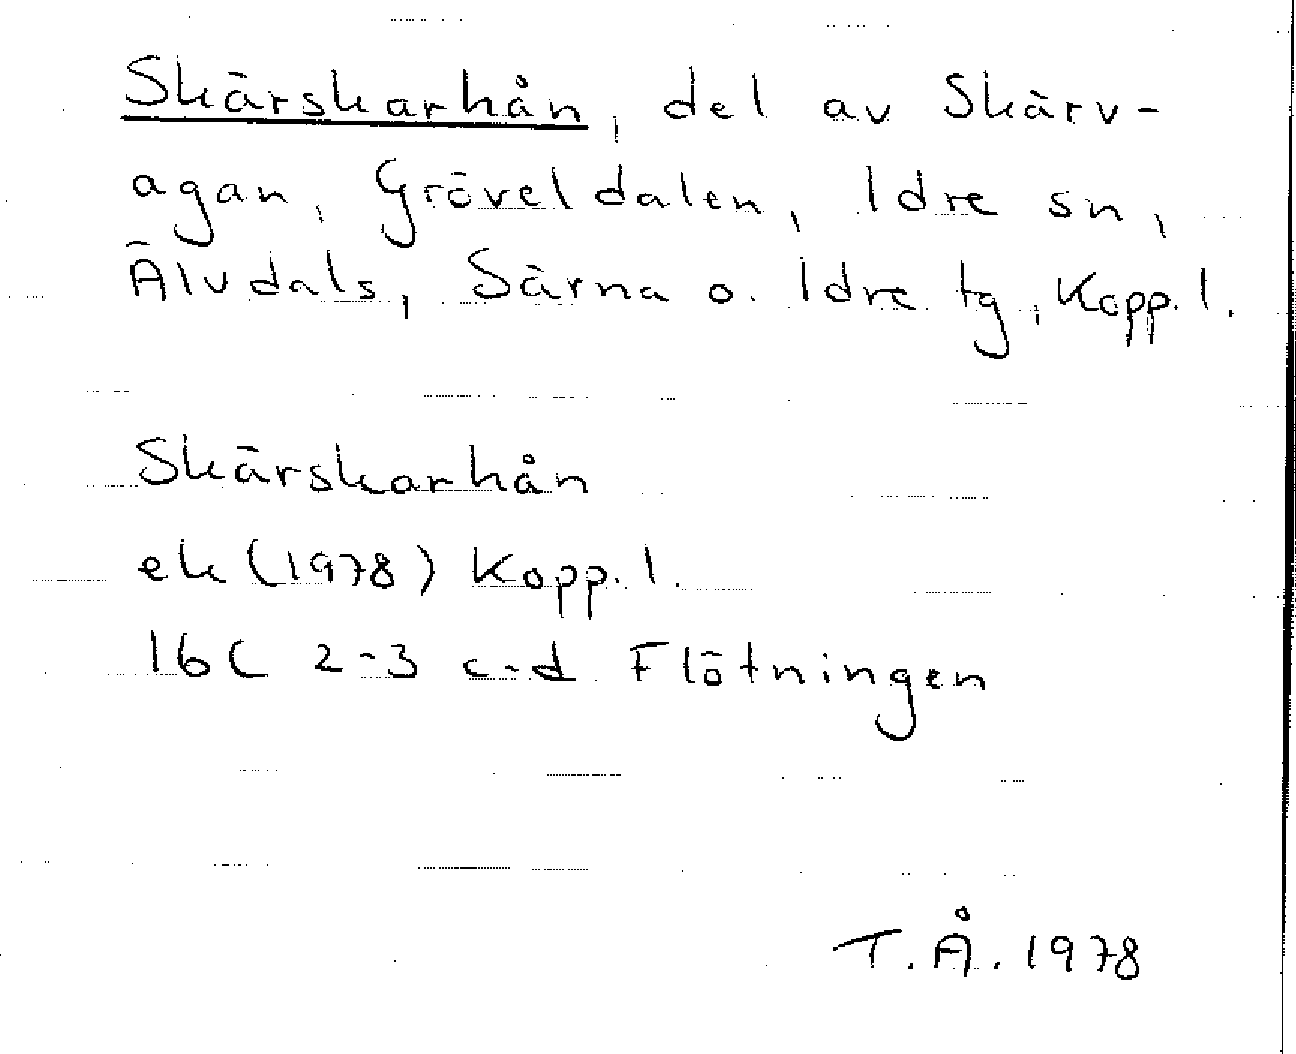 Skärskarhån, del av Skärv-
agan, Gröveldalen, Idre sn,
Älvdals, Särna o. Idre tg, Kopp. l.
Skärskarhån
ek (1978) Kopp. l.
16C 2-3 c-d Flötningen
T.Å. 1978